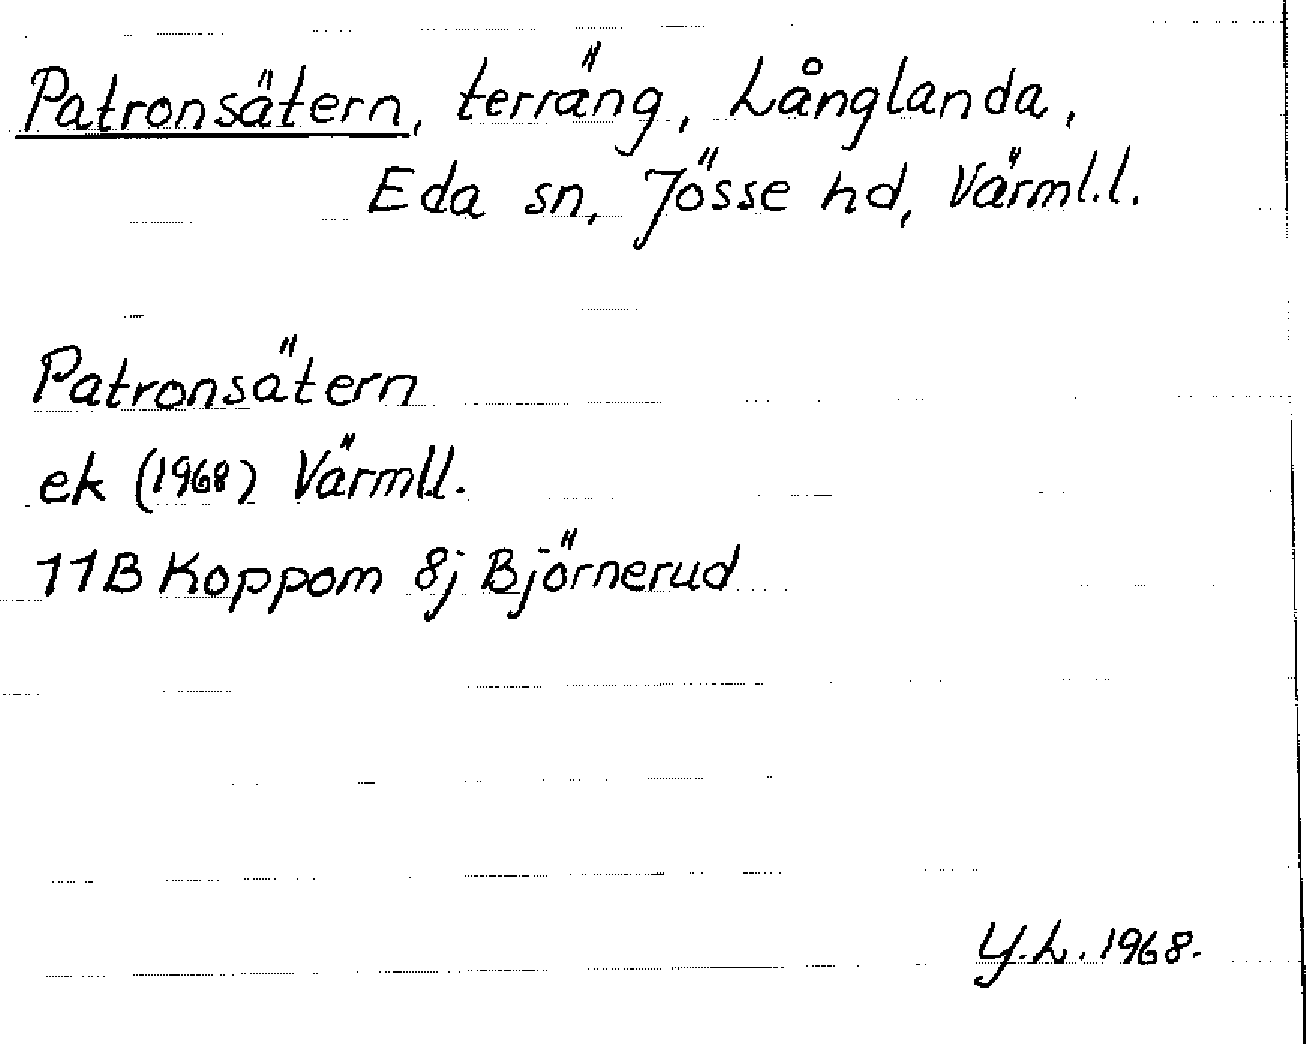 Patronsätern, terräng, Långlanda,
Eda sn, Jösse hd, Värml.l.
Patronsätern
ek (1968) Värml.l.
11B Koppom 8j Björnerud
Y.L. 1968.